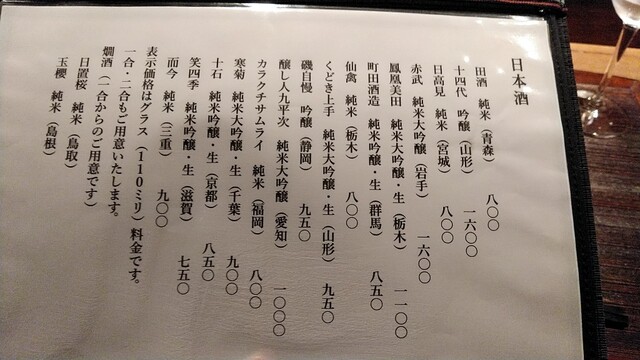 日本酒
田酒 純米（青森） 八〇〇
十四代 吟醸（山形） 一六〇〇
日高見 純米（宮城） 八〇〇
赤武 純米大吟醸（岩手） 一六〇〇
鳳凰美田 純米大吟醸・生（栃木） 一一〇〇
町田酒造 純米吟醸・生（群馬） 八五〇
仙禽 純米（栃木） 八〇〇
くどき上手 純米大吟醸・生（山形） 九五〇
磯自慢 吟醸（静岡） 九五〇
醸し人九平次 純米大吟醸（愛知） 一〇〇〇
カラクチサムライ 純米（福岡） 八〇〇
寒菊 純米大吟醸・生（千葉） 九〇〇
十石 純米吟醸・生（京都） 八五〇
笑四季 純米吟醸・生（滋賀） 七五〇
而今 純米（三重） 九〇〇
表示価格はグラス（110ミリ）料金です。
一合・二合もご用意いたします。
燗酒（一合からのご用意です）
日置桜 純米（鳥取）
玉櫻 純米（島根）